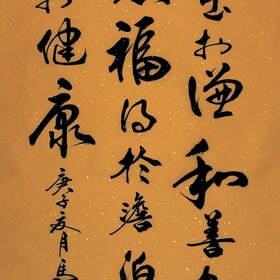 於谦和善
福得於澹泊
於健康
庚子夏月馬